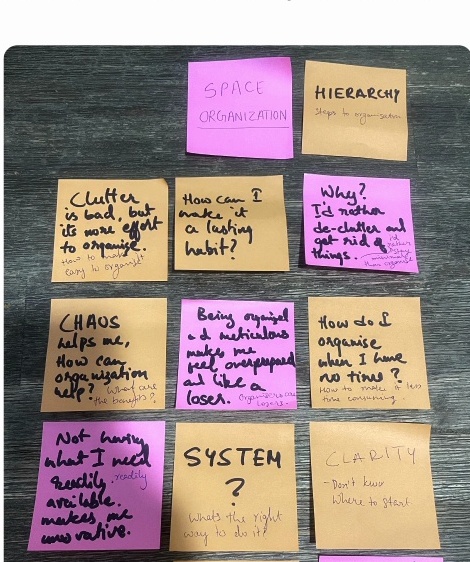 SPACE
ORGANIZATION
HIERARCHY
Steps to organisation
Clutter
is bad, but
it's more effort
to organise.
How to make
easy to organise
How can I
make it
a lasting
habit?
Why?
I'd rather
de-clutter and
get rid of
things.
I'd
rather
minimalise
than organise
CHAOS
helps me,
How can
organization
help? What are
the benefits?
Being organized
and meticulous
makes me
feel overprepared
and like a
loser. Organizers are
losers.
How do I
organise
when I have
no time?
How to make it less
time consuming.
Not having
what I need
readily readily
available.
makes me
innovative.
SYSTEM
?
Whats the right
way to do it?
CLARITY
- Don't know
where to start